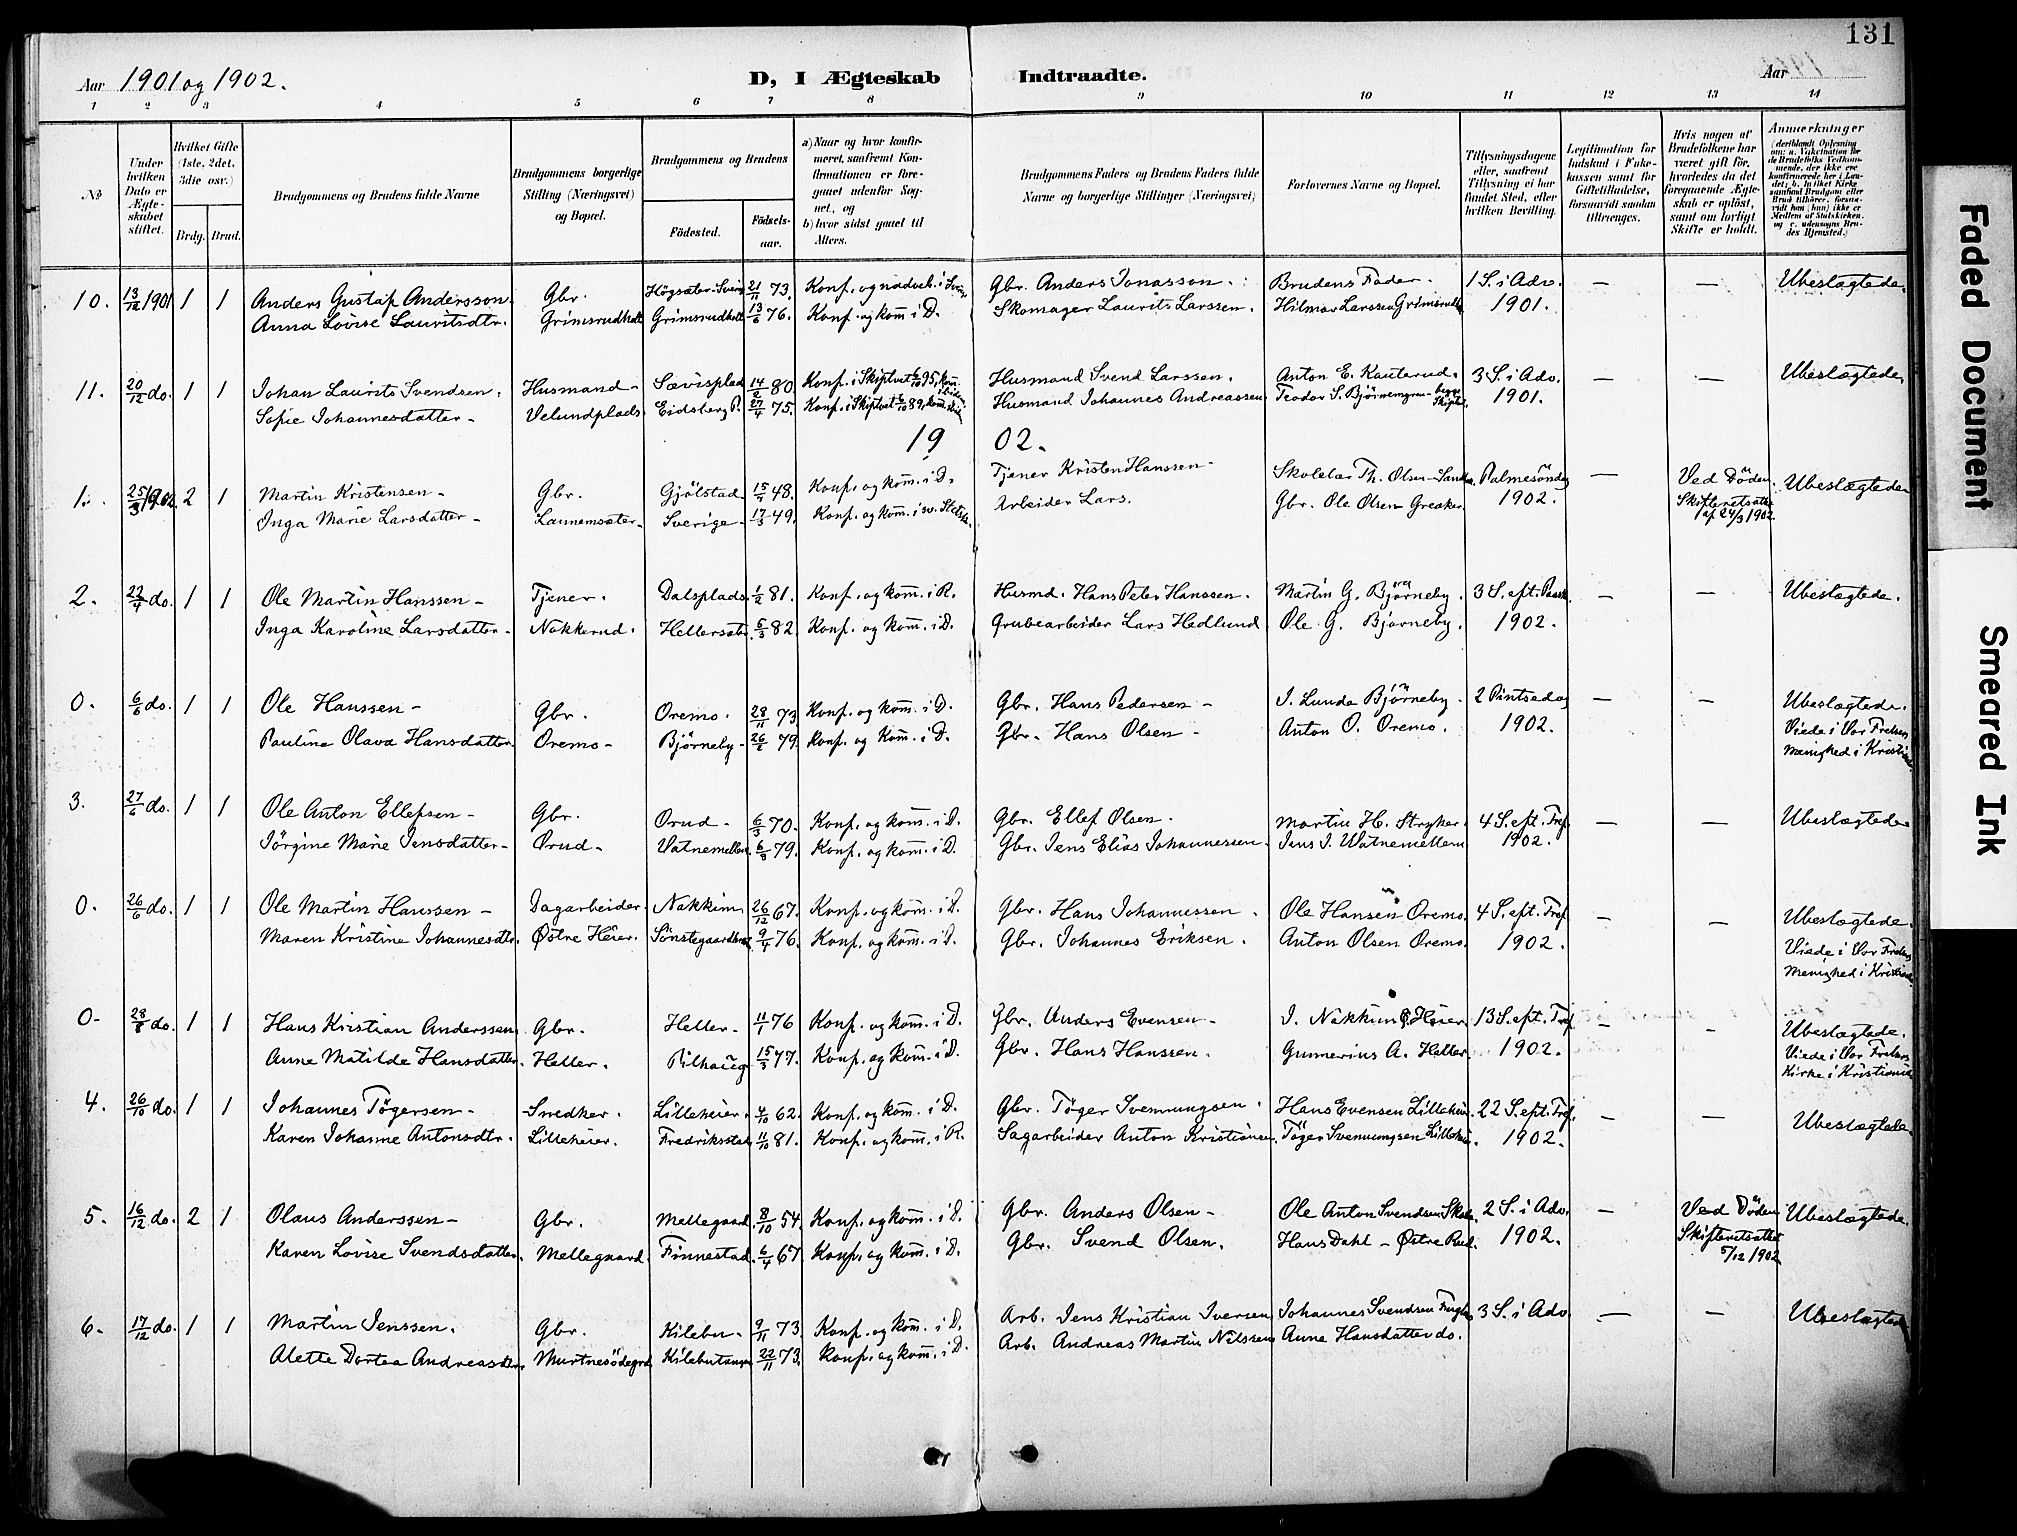 131
Aar 1901 og 1902.
D, I Ægteskab Indtraadte.
Aar
1 2 3 4 5 6 7 8 9 10 11 12 13 14
No
Under hvilken Dato er Ægteskabet stiftet.
Hvilket Gifte (1ste, 2det, 3die osv.)
Brdg. Brud.
Brudgommens og Brudens fulde Navne
Brudgommens borgerlige Stilling (Næringsvei) og Bopæl.
Brudgommens og Brudens
Födested. Födselsaar.
a) Naar og hvor konfirmeret, saafremt Konfirmationen er foregaaet udenfor Sognet, og
b) hvor sidst gaaet til Alters.
Brudgommens Faders og Brudens Faders fulde Navne og borgerlige Stillinger (Næringsvei)
Forlovernes Navne og Bopæl.
Tillysningsdagene eller, saafremt Tillysning ei har fundet Sted, efter hvilken Bevilling.
Legitimation for Indskud i Enkekassen samt for Giftetilladelse, forsaavidt saadan tiltrænges.
Hvis nogen af Brudefolkene har været gift før, hvorledes da det foregaaende Ægteskab er oplöst, samt om lovligt Skifte er holdt.
Anmærkninger (deriblandt Oplysning om: a. Vakcination for de Brudefolks Vedkommende, der ikke ere konfirmerede her i Landet; b. hvilket Kirkesamfund Brudgom eller Brud tilhörer, forsaavidt han (hun) ikke er Medlem af Statskirken, og c. udensogns Brudes Hjemsted.)
10. 13/12 1901 1 1 Anders Gustaf Andersson. Gbr. Högsæter. Sverig 21/11 73. Konf. og nadveb. i Sverig Gbr. Anders Jonassen. Brudens Fader. 1 S. i Adv. — — Ubeslægtede.
Anna Lovise Lauritsdtr. Grimsrudholt Grimsrudholt 13/6 76. Konf. og kom̄ i D. Skomager Laurits Larssen. Hilmar Larssen Grimsrudh. 1901.
11. 20/12 do. 1 1 Johan Laurits Svendsen. Husmand - Sævisplads 14/2 80 Konf. i Skiptvet 6/10 95, kom̄. Husmand Svend Larssen. Anton E. Kauterud. 3 S. i Adv. — — Ubeslægtede.
Sofie Johannesdatter - Velundplads. Eidsberg P. 27/4 75. Konf. i Skiptvet 6/10 89, kom̄. Husmand Johannes Andreassen Teodor S. Björnemyren - begge Skiptv. 1901.
19 02.
1. 25/3 1902 2 1 Martin Kristensen - Gbr. Gjölstad 15/7 48. Konf. og kom̄. i D. Tjener Kristen Hanssen - Skolelær Th. Olsen - Sandta. Palmesöndag — Ved Döden. Ubeslægtede
Inga Marie Larsdatter - Launemsæter - Sverige - 17/3 49. Konf. og kom̄. i sv. Statsk. Arbeider Lars. Gbr. Ole Olsen Greaker 1902. Skifteretsatt. af 24/3 1902
2. 22/4 do. 1 1 Ole Martin Hanssen - Tjener. Dalsplads. 1/2 81. Konf. og kom̄. i R. Husmd. Hans Peter Hanssen. Martin G. Björneby. 3 S. eft. Paask. — — Ubeslægtede.
Inga Karoline Larsdatter - Nakkerud. Hellersæter. 5/3 82. Konf. og kom̄. i D. Grubearbeider Lars Hedlund Ole G. Björneby. 1902.
0. 6/6 do. 1 1 Ole Hanssen - Gbr. Oremo. 28/11 73 Konf. og kom̄. i D. Gbr. Hans Pedersen - J. Lunde Björneby. 2 Pintsedag — — Ubeslægtede.
Pauline Olava Hansdatter Oremo - Björneby - 26/2 79. Konf. og Kom̄. i D. Gbr. Hans Olsen - Anton O. Oremo. 1902. Viede i Vor Frelsers menighed i Kristiania.
3. 27/6 do. 1 1 Ole Anton Ellefsen - Gbr. Orud - 6/3 70. Konf. og kom̄. i D. Gbr. Ellef Olsen. Martin H. Stryker. 4 S. eft. Tref. — — Ubeslægtede
Jörgine Marie Jensdatter - Orud - Vatnemellem. 6/9 79. Konf. og kom̄. i D. Gbr. Jens Elias Johannessen. Jens J. Watnemellem 1902.
0. 26/6 do. 1 1 Ole Martin Hanssen - Dagarbeider. Nakkim 26/12 67. Konf. og kom̄. i D. Gbr. Hans Johannessen. Ole Hansen Oremo. 4 S. eft. Tref. — — Ubeslægtede.
Maren Kristine Johannesdtr. Østre Heier. Sönstegaardbraat. 9/4 76. Konf. og kom̄. i D. Gbr. Johannes Eriksen. Anton Olsen Oremo. 1902. Viede i Vor Frelsers menighed i Kristiania
0 - 28/8 do. 1 1 Hans Kristian Anderssen Gbr. Heller - 11/1 76 Konf. og kom̄. i D. Gbr. Anders Evensen - J. Nakkim Ö. Heier. 13 S. eft. Tref. — — Ubeslægtede.
Anne Matilde Hansdatter. Heller. Pilhaug 15/3 77. Konf. og kom̄. i D. Gbr. Hans Hanssen. Gunnerius A. Heller. 1902. Viede i Vor Frelsers Kirke i Kristiania
4. 26/10 do. 1 1 Johannes Tögersen - Snedker. Lilleheier. 4/10 62. Konf. og kom̄. i D. Gbr. Töger Svennungsen. Hans Evensen Lilleheier. 22 S. eft. Tref. — — Ubeslægtede.
Karen Johanne Antonsdtr. Lilleheier. Fredriksstad 11/10 81. Konf. og kom̄. i R. Sagarbeider Anton Kristiansen. Töger Svennungsen Lilleheier. 1902.
5. 16/12 do. 2 1 Olaus Anderssen - Gbr. Mellegaard. 8/10 54. Konf. og kom̄. i D. Gbr. Anders Olsen - Ole Anton Svendsen 2 S. i Adv. — Ved Döden Ubeslægtede.
Karen Lovise Svendsdatter. Mellegaard. Finnestad. 6/4 67. Konf. og kom̄. i D. Gbr. Svend Olsen. Hans Dahl - Østre Rud. 1902. Skifteretsattest 5/12 1902
6. 17/12 do. 1 1 Martin Jenssen. Gbr. Kilebu - 9/11 73. Konf. og kom̄. i D. Arb. Jens Kristian Iversen Johannes Svendsen 3 S. i Adv — — Ubeslægtede
Alette Dortea Andreasdtr. Murtnesödegrd. Kilebutangen 22/11 73. Konf. og kom̄. i D. Arb. Andreas Martin Nilssen Anne Hansdatter do.
Faded Document
Smeared Ink